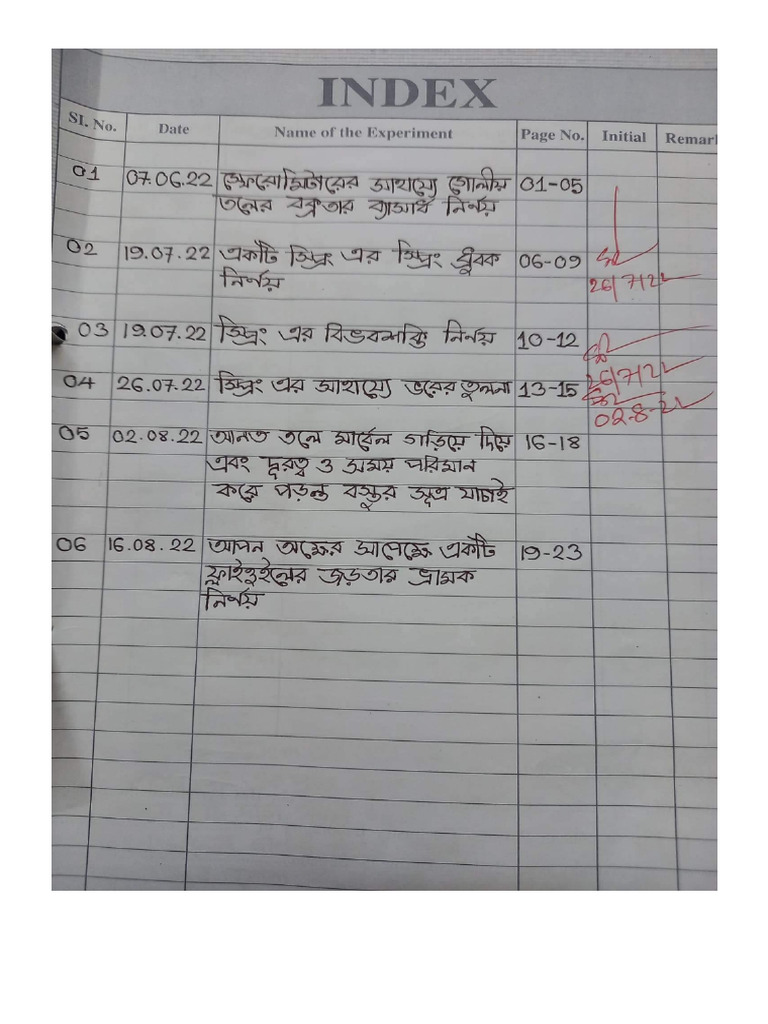 INDEX
Sl. No. Date Name of the Experiment Page No. Initial Remar
01 07.06.22 স্ফেরোমিটারের সাহায্যে গোলীয় 01-05
তলের বক্রতার ব্যাসার্ধ নির্ণয়
02 19.07.22 একটি স্প্রিং এর স্প্রিং ধ্রুবক 06-09
নির্ণয় 26/7/22
03 19.07.22 স্প্রিং এর বিভবশক্তি নির্ণয় 10-12
04 26.07.22 স্প্রিং এর সাহায্যে ভরের তুলনা 13-15 26/7/22
02-8-22
05 02.08.22 আনত তলে মার্বেল গড়িয়ে দিয়ে 16-18
এবং দূরত্ব ও সময় পরিমান
করে পড়ন্ত বস্তুর সূত্র যাচাই
06 16.08.22 আপন অক্ষের সাপেক্ষে একটি 19-23
ফ্লাইহুইলের জড়তার ভ্রামক
নির্ণয়